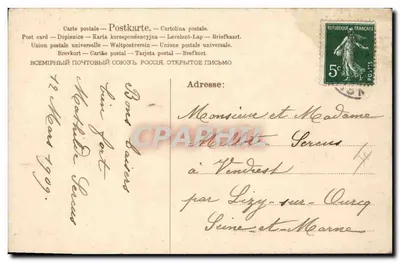 Carte postale – Postkarte. – Cartolina postale.
Post card – Dopisnice – Karta korespondencyjna – Levelező-Lap – Briefkaart.
Union postale universelle – Weltpostverein – Unione postale universale.
Brevkort – Cartão postal – Tarjeta postal.
ВСЕМІРНЫЙ ПОЧТОВЫЙ СОЮЗЪ РОССІЯ. ОТКРЫТОЕ ПИСЬМО
RÉPUBLIQUE FRANÇAISE
5c
POSTES
Bons baisers
bien fort
Mathilde Sercus
12 Mars 1909.
Adresse:
Monsieur et Madame
Sercus
à Vendrest
par Lizy-sur-Ourcq
Seine-et-Marne
delcampe.net